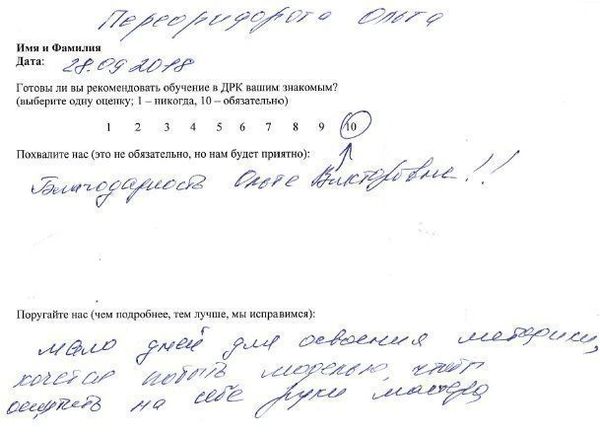 Переоридорога Ольга
Имя и Фамилия
Дата: 28.09.2018
Готовы ли вы рекомендовать обучение в ДРК вашим знакомым?
(выберите одну оценку; 1 – никогда, 10 – обязательно)
1 2 3 4 5 6 7 8 9 10
Похвалите нас (это не обязательно, но нам будет приятно):
Благодарность Ольге Викторовне!!
Поругайте нас (чем подробнее, тем лучше, мы исправимся):
мало дней для освоения методики,
хочется побыть моделью, чтобы
ощутить на себе руки мастера